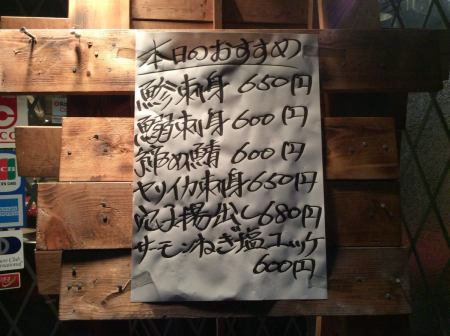 本日のおすすめ
鯵刺身 650円
鰯刺身 600円
締め鯖 600円
ヤリイカ刺身 650円
穴子揚出し 680円
サーモンねぎ塩ユッケ
600円
JCB